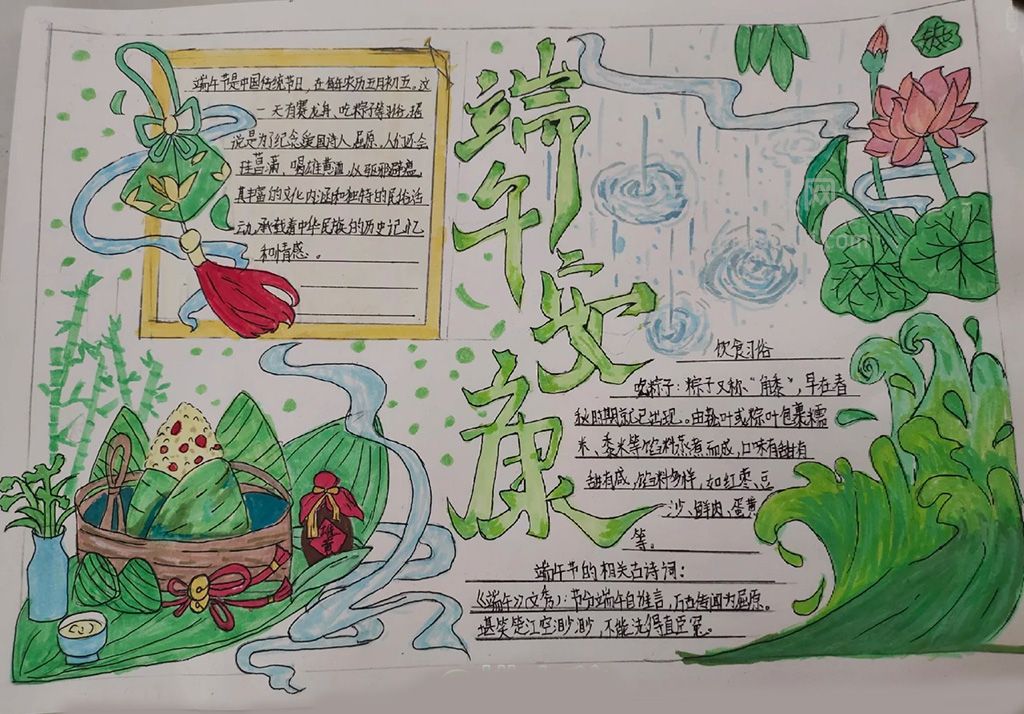 端午节是中国传统节日，在每年农历五月初五。这
一天有赛龙舟、吃粽子等习俗，据
说是为了纪念爱国诗人屈原，人们还会
挂菖蒲、喝雄黄酒，以驱邪避恶。
其丰富的文化内涵和独特的民俗活
动，承载着中华民族的历史记忆
和情感。
端午安康
饮食习俗
吃粽子：粽子又称"角黍"，早在春
秋时期就已出现。由箬叶或粽叶包裹糯
米、黍米等馅料蒸煮而成，口味有甜有
甜有咸，馅料多样，如红枣、豆
沙、鲜肉、蛋黄
等。
端午节的相关古诗词：
《端午》(文秀)：节分端午自谁言，万古传闻为屈原。
堪笑楚江空渺渺，不能洗得直臣冤。